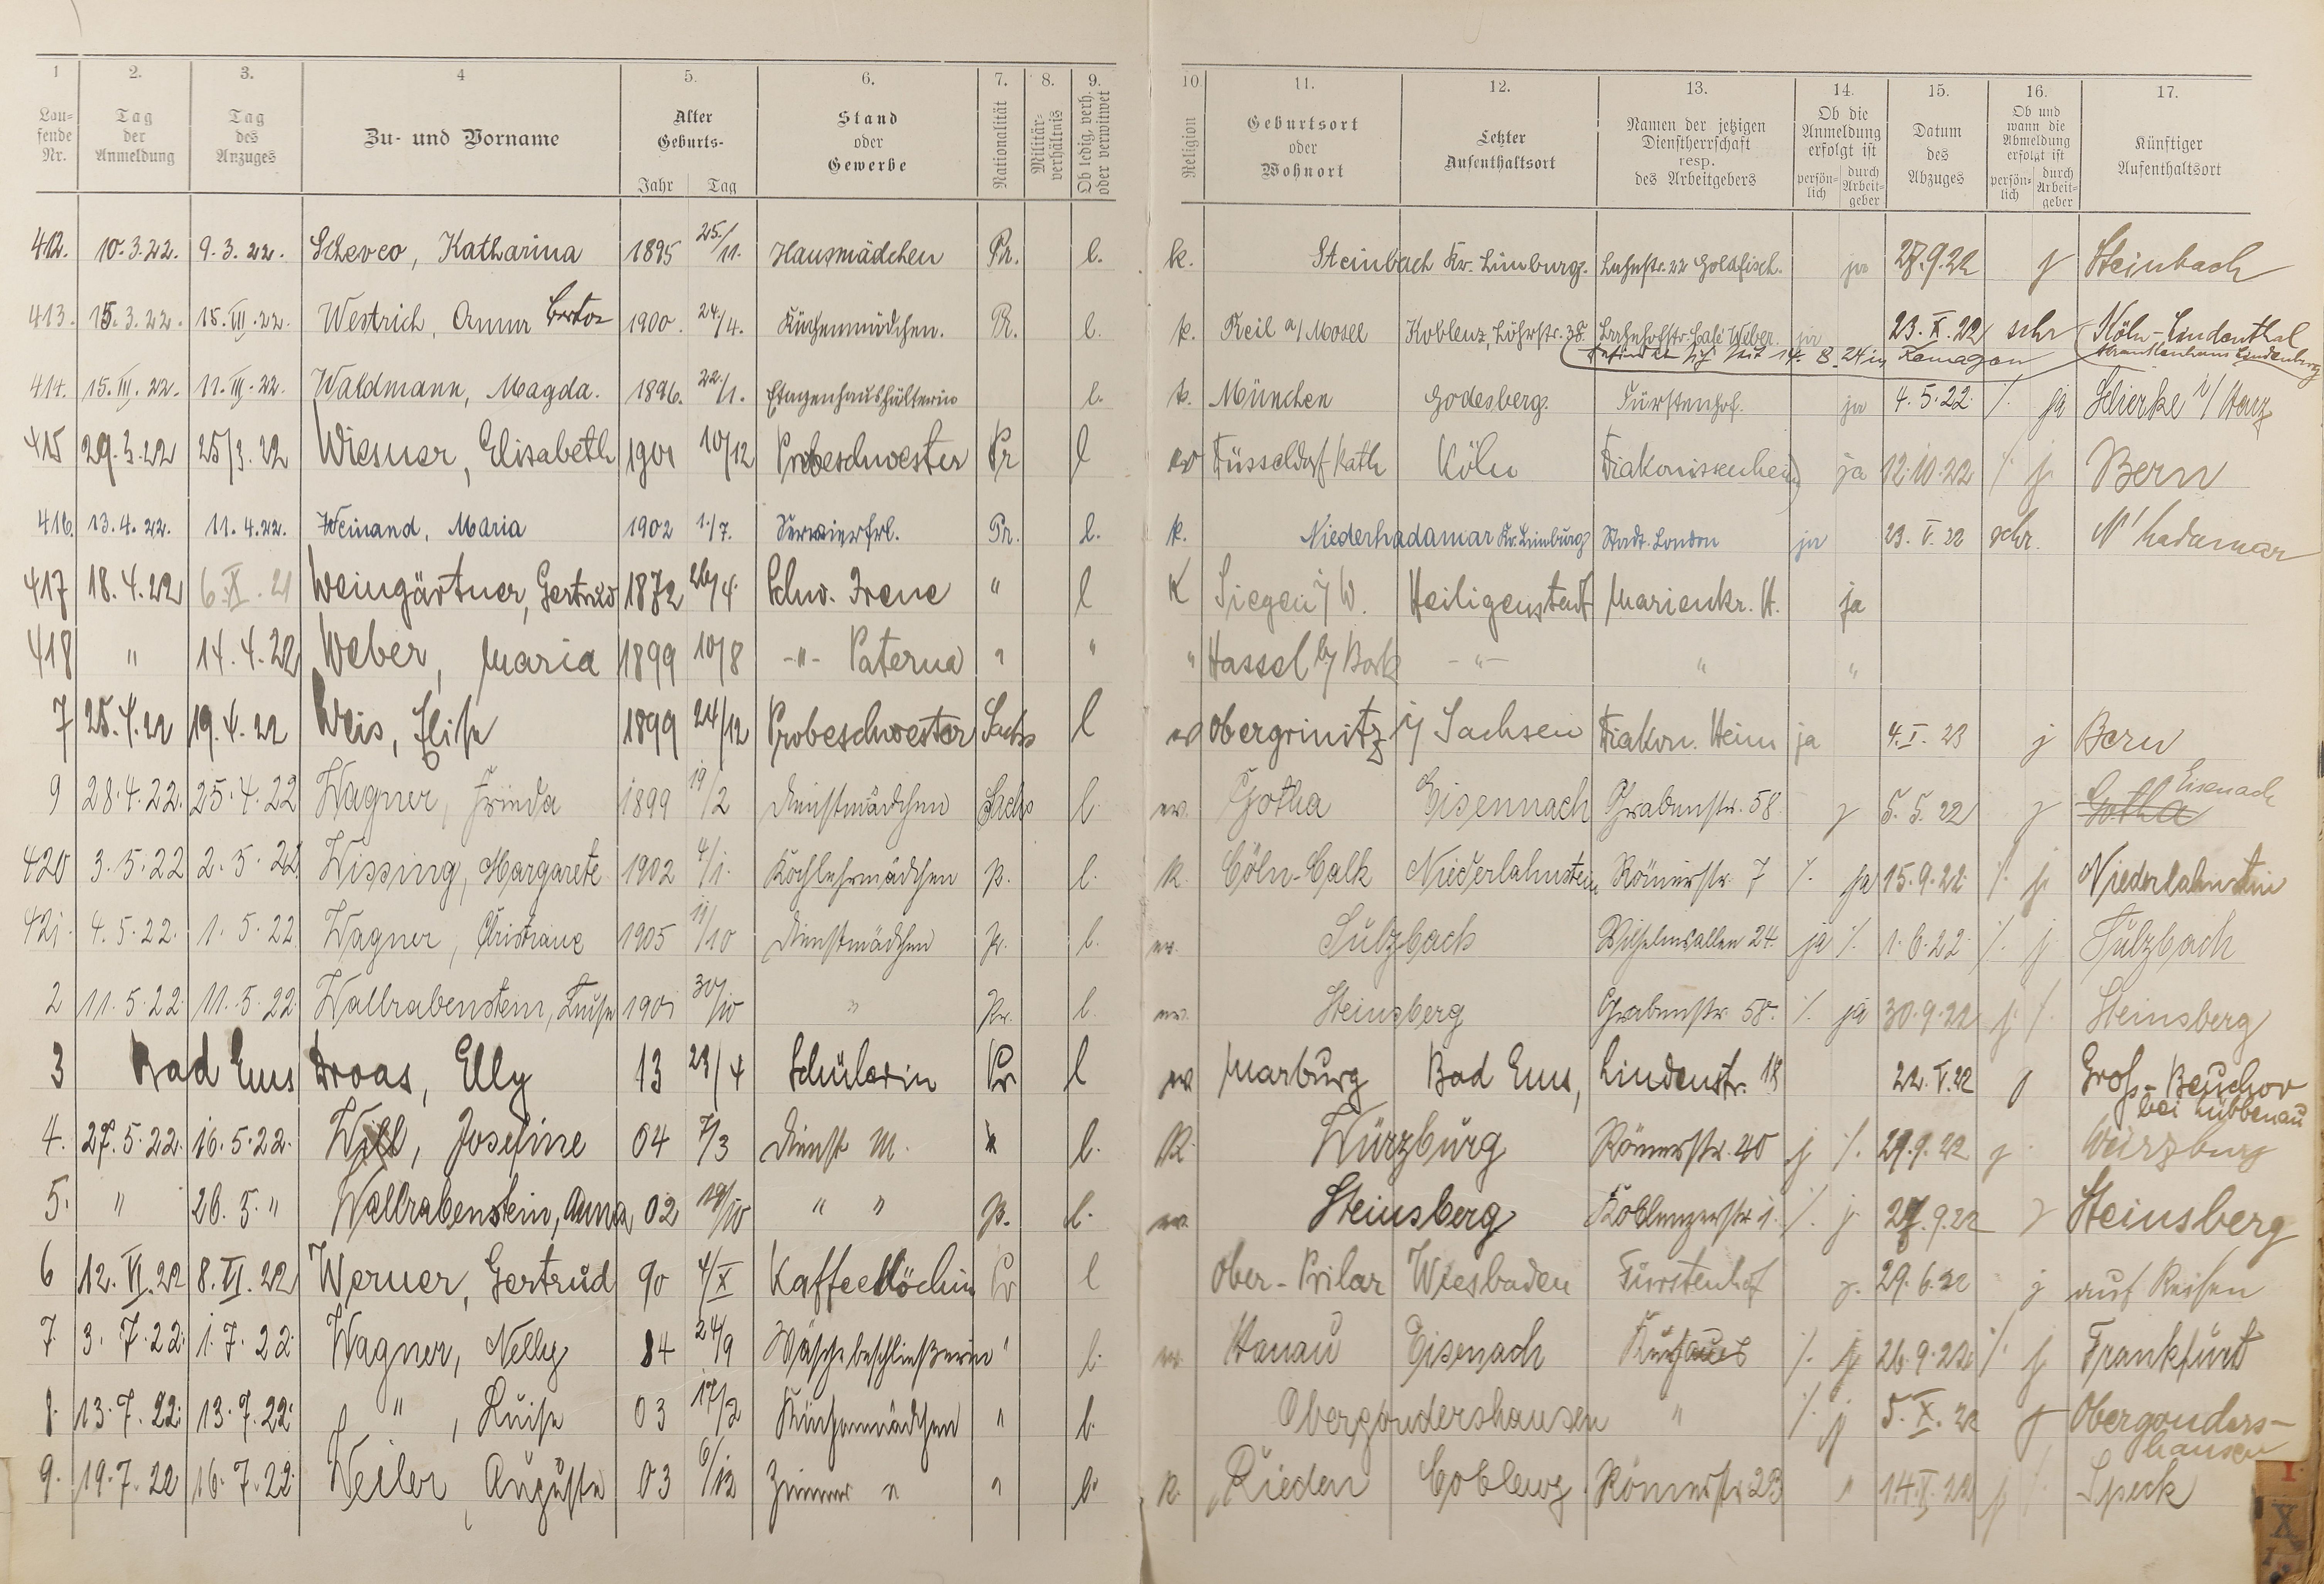 1 2. 3. 4 5. 6. 7. 8. 9. 10 11. 12. 13. 14. 15. 16. 17.
Lau-
fende
Nr.
Tag
der
Anmeldung
Tag
des
Anzuges
Zu- und Vorname
Alter
Geburts-
Jahr Tag
Stand
oder
Gewerbe
Nationalität
Militär-
verhältnis
Ob ledig, verh.
oder verwitwet
Religion
Geburtsort
oder
Wohnort
Letzter
Aufenthaltsort
Namen der jetzigen
Dienstherrschaft
resp.
des Arbeitgebers
Ob die
Anmeldung
erfolgt ist
persön-
lich
durch
Arbeit-
geber
Datum
des
Abzuges
Ob und
wann die
Abmeldung
erfolgt ist
persön-
lich
durch
Arbeit-
geber
Künftiger
Aufenthaltsort
412. 10.3.22. 9.3.22. Katharina 1895 25./11. Hausmädchen Pr. l. k. Steinbach Kr. Limburg. 22 Goldfisch. ja 9.22 j Steinbach
413. 15.3.22. 15.III.22. Westrich, Anna 1900. 24./4. Küchenmädchen. Pr. l. k. Reil a/Mosel Koblenz, Löhrstr. 38. Bahnhofstr. Café Weber. ja 23.X.22 schr Köln-Lindenthal
14.8.24 in Remagen Krankenhaus Lindenburg
414. 15.III.22. 11.III.22. Waldmann, Magda. 1896. 22./1. Etagenhaushälterin l. k. München Godesberg. Fürstenhof. ja 4.5.22 /. ja Schierke i/Harz
415 29.3.22 25/3.22 Wiesner, Elisabeth 1901 10/12 Probeschwester Pr l ev Düsseldorf-Rath Köln Diakonissenheim ja 12.10.22 /. j. Bern
416. 13.4.22. 11.4.22. Weinand, Maria 1902 1./7. Servierfrl. Pr. l. k. Niederhadamar Kr. Limburg Stadt London ja 23.V.22 schr. N'hadamar
417 18.4.22 6.XI.21 Weingärtner, Gertrud 1872 26/4. Schw. Irene " l K Siegen i/W. Heiligenstadt Marienkr. H. ja
418 " 14.4.22 Weber, Maria 1899 10/8 -"- Paterna " " " Hassel b/Bork -"- " "
7 25.4.22 19.4.22 Weis, Elise 1899 24/12 Probeschwester Sachs l ev Obergrinitz i/Sachsen Diakon. Heim ja 4.I.23 j Bern
9 28.4.22. 25.4.22 Wagner, Frieda 1899 19/2 Dienstmädchen Sachs l. ev. Gotha Eisennach Grabenstr. 58. j 5.5.22 j Gotha Eisenach
420 3.5.22 2.5.22 Wissing, Margarete 1902 4/1. Kochlehrmädchen p. l. K. Cöln-Calk Niederlahnstein Römerstr. 7 /. ja 15.9.22 /. j. Niederlahnstein
421. 4.5.22. 1.5.22 Wagner, Christiane 1905 11/10 Dienstmädchen p. l. ev. Sulzbach Wilhelmsallee 24. ja /. 1.6.22 /. j. Sulzbach
2 11.5.22. 11.5.22 Wallrabenstein, Luise 1901 30/10 " Pr. l. ev. Steinsberg Grabenstr. 58. /. ja 30.9.22 j. /. Steinsberg
3 Bad Ems Droas, Elly 13 23/4 Schülerin Pr l ev Marburg Bad Ems, Lindenstr. 18 22.V.22 j Groß-Beuchov
bei Lübbenau
4. 27.5.22. 16.5.22. Will, Josefine 04 7/3 Dienst M. l. K. Würzburg Römerstr. 40 j /. 29.9.22 j Würzburg
5. " 26.5." Wallrabenstein, Anna 02 19/10 " " p. l. ev. Steinsberg Koblenzerstr. 1. /. j. 27.9.22 j Steinsberg
6 12.VI.22 8.VI.22 Werner, Gertrud 90 4/X Kaffeeköchin Pr l Wiesbaden Fürstenhof j. 29.6.22 j auf Reisen
7. 3.7.22. 1.7.22. Wagner, Nelly 84 24/9 Wäschebeschließerin " l. ev. Hanau Eisenach Kurhaus /. j 26.9.22 /. j. Frankfurt
8. 13.7.22. 13.7.22. ", Luise 03 17/2 Küchenmädchen " l. Obergondershausen " /. j 5.X.22 j Obergonders-
hausen
9. 19.7.22 16.7.22. Weiler, Auguste 03 6/12 Zimmer " " l. K. Rieden Coblenz Römerstr. 23 " 22 j /. Speck
I.
X